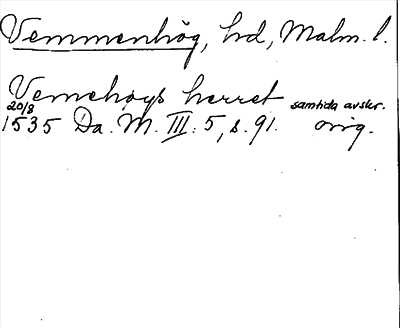 Vemmenhög, hd, Malm. l.
Vemehøys herret samtida avskr.
20/8
1535 Da. M. III. 5, s. 91. orig.